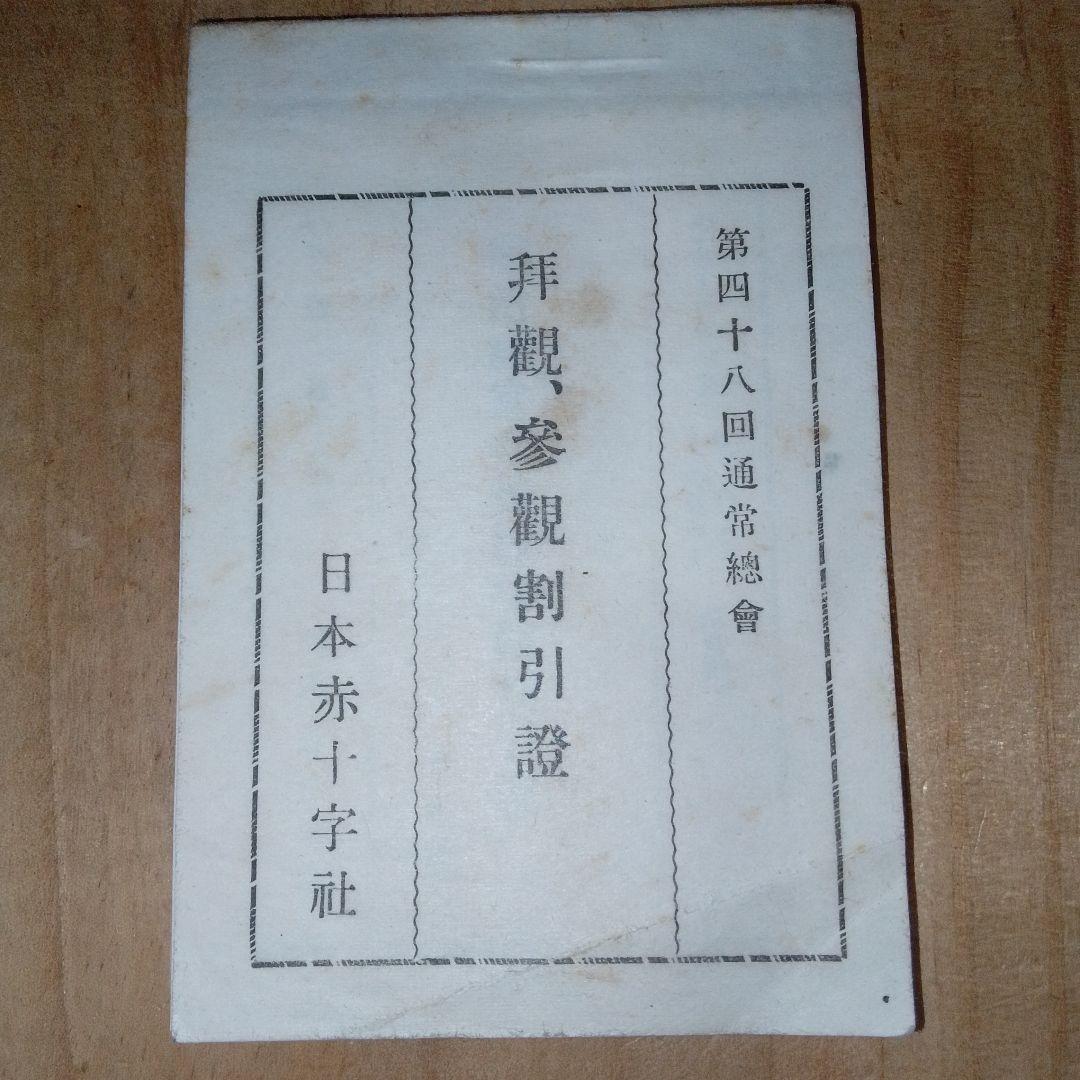 第四十八回通常總會
拜觀、參觀割引證
日本赤十字社